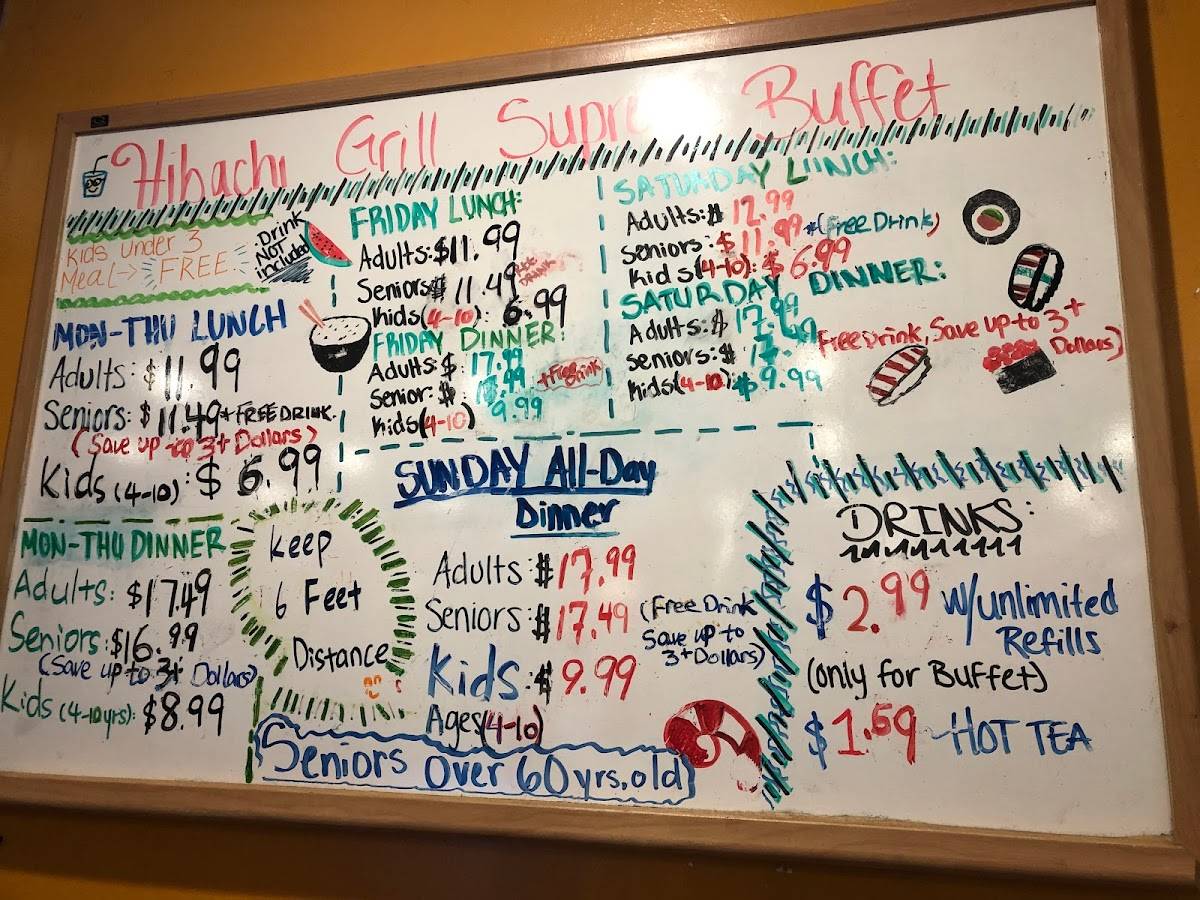 Hibachi Grill Supre Buffet
Kids under 3
Meal → FREE
Drink
NOT
included
MON-THU LUNCH
Adults: $11.99
Seniors: $11.49 + FREE DRINK.
(Save up to 3+ Dollars)
Kids (4-10): $6.99
MON-THU DINNER
Adults: $17.49
Seniors: $16.99
(Save up to 3+ Dollars)
Kids (4-10yrs): $8.99
FRIDAY LUNCH:
Adults: $11.99
Seniors $11.49 FREE DRINK
Kids (4-10): 6.99
FRIDAY DINNER:
Adults: $. 17.99
Senior: $. +Free Drink
Kids (4-10) 9.99
SATURDAY LUNCH:
Adults: $12.99
Seniors: $11.99 *(Free Drink)
Kids (4-10): $6.99
SATURDAY DINNER:
Adults: $17.99
Seniors: $17.49
Kids (4-10): $9.99
Free Drink, Save up to 3+
Dollars)
SUNDAY All-Day
Dinner
Adults: $17.99
Seniors: $17.49
Kids: $9.99
Ages (4-10)
(Free Drink
Save up to
3+ Dollars)
Keep
6 Feet
Distance
Seniors Over 60 yrs. old
DRINKS:
$2.99 w/unlimited
Refills
(only for Buffet)
$1.59 ~HOT TEA